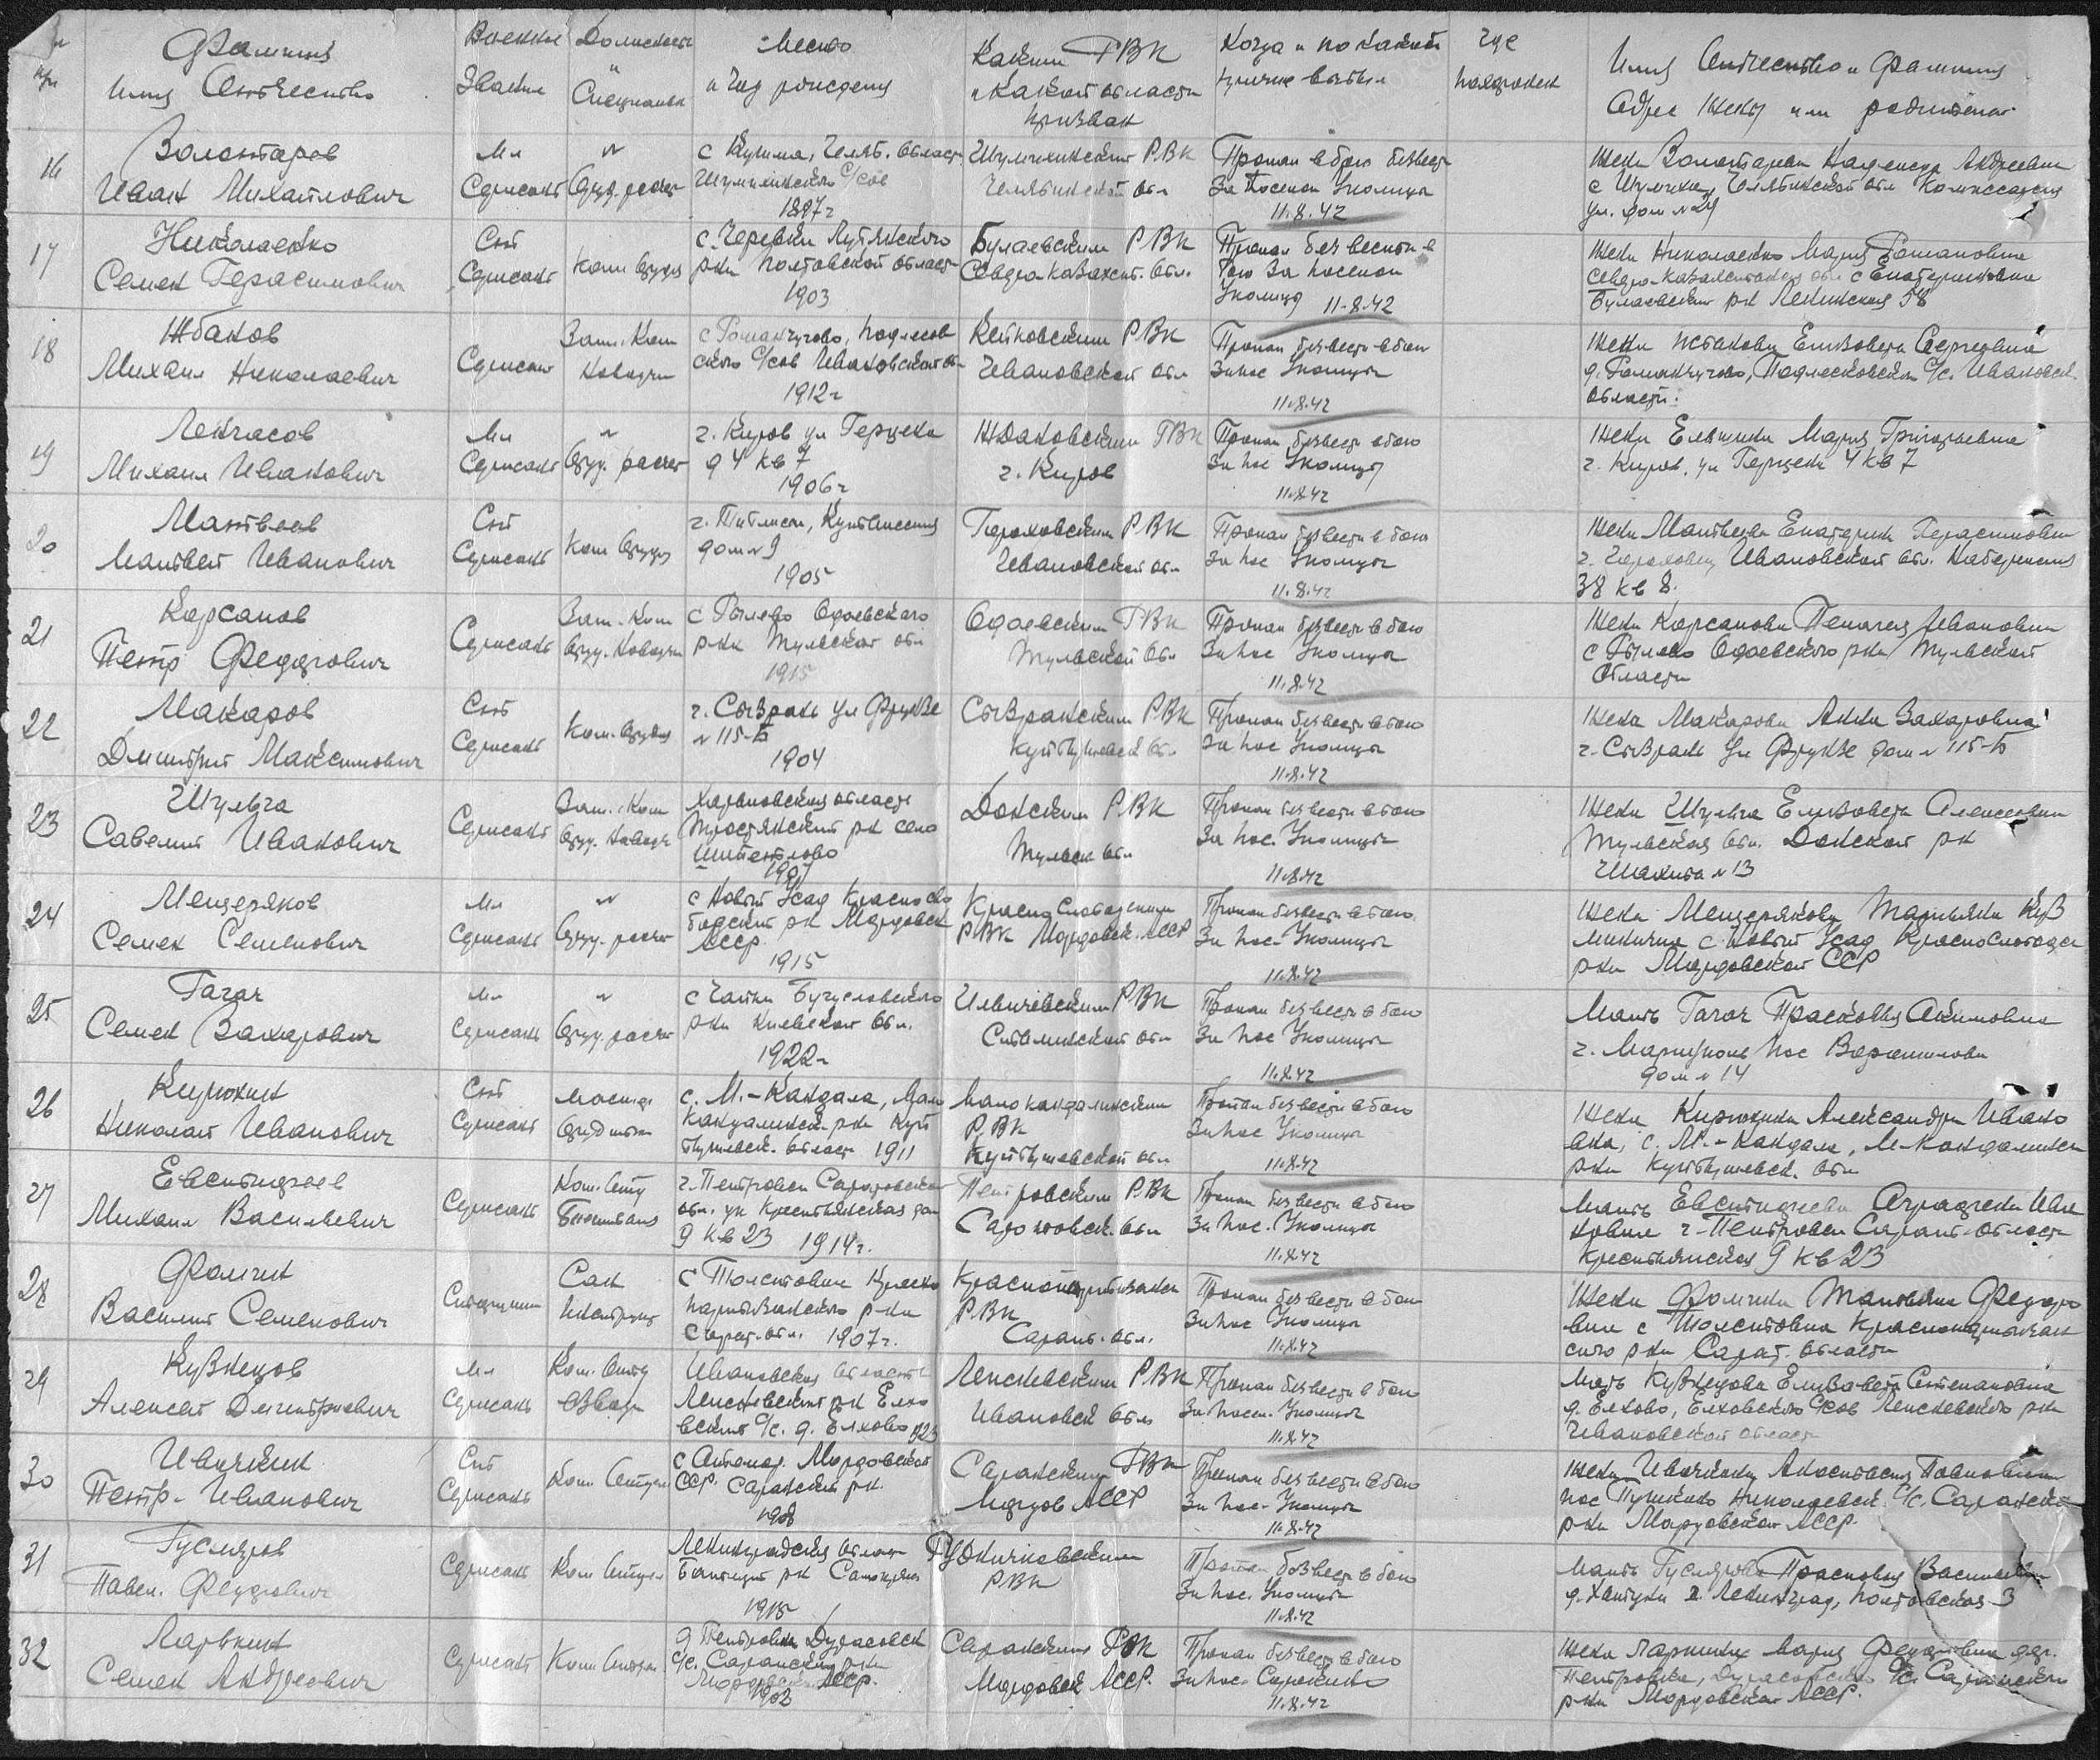 № п/п
Фамилия
Имя Отчество
Военное
Звание
Должность
и
Специальн
Место
и Год рождения
Каким РВК
и какой области
призван
Когда и по какой
причине выбыл
Где
похоронен
Имя Отчество и Фамилия
Адрес жены или родителей
16
Золотарев
Иван Михайлович
Мл
Сержант
Оруд. расчет
Челяб. область
Шумихинского с/сов
1897 г
Шумихинским РВК
Челябинской обл
Пропал в бою безвест
За поселок Уколицы
11.8.42
Жена Золотарева Надежда Андреевна
с Шумиха, Челябинской обл Комиссарская
ул. дом № 24
17
Николаенко
Семен Герасимович
Ст
Сержант
Ком орудия
с. Черевки Лутянского
р-на Полтавской област
1903
Булаевским РВК
Северо Казахст. обл.
Пропал без вести в
бою За поселок
Уколица 11.8.42
Жена Николаенко Мария Романовна
Северо-Казахстанская обл с Екатериновка
Булаевский р-н Ленинская 58
18
Жбанов
Михаил Николаевич
Сержант
Зам. Ком
Наводчик
с Романцугово, Подлесов
ского с/сов Ивановской об
1912 г
РВК
Ивановской обл
Пропал без вести в бою
За пос Уколицы
11.8.42
Жена Жбанова Елизавета Сергеевна
области.
19
Михаил Иванович
Мл
Сержант
Оруд. расчет
г. Киров ул Герцена
д 4 кв 7
1906 г
Ждановским РВК
г. Киров
Пропал безвести в бою
За пос Уколицы
11.8.42
Жена Елькина Мария Григорьевна
г. Киров, ул Герцена 4 кв 7
20
Матвеев
Матвей Иванович
Ст
Сержант
Ком Орудия
дом № 9
1905
Гороховским РВК
Ивановской обл
Пропал безвести в бою
За пос Уколицы
11.8.42
Жена Матвеева Екатерина Герасимовн
г. Гороховец Ивановской обл. Набережная
38 кв 8.
21
Корсаков
Петр Федорович
Сержант
Зам. Ком
Оруд. Наводчик
с Рылево Одоевского
р-на Тульской обл
1915
Одоевским РВК
Тульской обл
Пропал безвести в бою
За пос Уколицы
11.8.42
Жена Корсакова Пелагея Ивановна
с Рылево Одоевского р-на Тульской
Области
22
Макаров
Дмитрий Максимович
Ст
Сержант
Ком. Орудия
г. Сызрань ул Фрунзе
№ 115-Б
1904
Сызранским РВК
Куйбышевск обл.
Пропал безвести в бою
За пос Уколицы
11.8.42
Жена Макарова Анна Захаровна
г. Сызрань ул Фрунзе дом № 115-Б
23
Шульга
Савелий Иванович
Сержант
Зам. Ком
Оруд. Наводч
Харьковская область
Тростянский р-н село
1907
Донским РВК
Тульск обл
Пропал без вести в бою
За пос. Уколицы
11.8.42
Жена Шульга Елизавета Алексеевна
Тульская обл. Донской р-н
Шахта № 13
24
Мещеряков
Семен Семенович
Мл
Сержант
Оруд. расчет
с Новый Усад Краснсло
бодский р-н Мордовск
АССР
1915
Красно Слободским
РВК Мордовск. АССР
Пропал безвести в бою
За пос. Уколицы
11.8.42
Жена Мещерякова Татьяна Куз
минична с. Новый Усад Краснослободск
р-на Мордовской ССР
25
Гагач
Семен Захарович
Мл
Сержант
Оруд. расчет
Богуславского
р-на Киевской обл.
1922 г
Ильичевским РВК
Сталинской обл
Пропал безвести в бою
За пос Уколицы
11.8.42
Мать Гагач Прасковья Акимовна
г. Мариуполь пос Ворошилова
дом № 14
26
Кирюхин
Николай Иванович
Ст
Сержант
с. М.-Кандала, Мало
Кандалинский р-на Куй
бышевск. област 1911
Мало кандалинским
РВК
Куйбышевской обл
Пропал безвести в бою
За пос Уколицы
11.8.42
Жена Кирюхина Александра Ивано
вна, с. М.-Кандала, М-Кандалинск
р-на Куйбышевск. обл
27
Евстигнеев
Михаил Васильевич
Сержант
Ком. Отд
г. Петровск Саратовской
обл. ул Крестьянская дом
9 кв 23 1914 г.
Петровским РВК
Саратовск. обл
Пропал без вести в бою
За пос. Уколицы
11.8.42
Мать Евстигнеева Аграфена Ива
новна г. Петровск Сарат. область
Крестьянская 9 кв 23
28
Фомчин
Василий Семенович
Сан
Инструк
с Толстовка Красно
партизанского р-на
Сарат. обл. 1907 г.
Краснопартизанск
РВК
Сарат. обл.
Пропал безвести в бою
За пос Уколицы
11.8.42
Жена Фомчина Татьяна Федоро
вна с Толстовка Краснопартизан
ского р-на Сарат. области
29
Кузнецов
Алексей Дмитриевич
Мл
Сержант
Ком. Отд
Связи
Ивановская область
Лежневский р-н Елхо
вский с/с. д. Елхово 1923
Лежневским РВК
Ивановск обл
Пропал безвести в бою
За посел. Уколицы
11.8.42
Мать Кузнецова Елизавета Степановна
д. Елхово, Елховского с/сов Лежневского р-на
Ивановской област
30
Ивачкин
Петр Иванович
Ст
Сержант
Ком Отдел
Мордовской
ССР. Саранский р-н.
1908
Саранским РВК
Мордов АССР
Пропал безвести в бою
За пос. Уколицы
11.8.42
пос Пушкино Николаевск. с/с. Саранско
р-на Мордовской АССР.
31
Гусляров
Павел Федорович
Сержант
Ком Отдел
Ленинградская област
1915
РВК
Пропал безвести в бою
За пос. Уколицы
11.8.42
Мать Гуслярова Прасковья Васильевн
Ленинград, Полтавская 3
32
Ларькин
Семен Андреевич
Сержант
Ком Отдел
д Петровка Дурасовск
с/с. Саранский р-на
Мордовской АССР.
1903
Саранским РВК
Мордовск АССР.
Пропал безвести в бою
За пос. Сорокино
11.8.42
Жена Ларькина Мария Федотовна дер.
Петровка, Дурасовского с/с. Саранского
р-на Мордовской АССР.